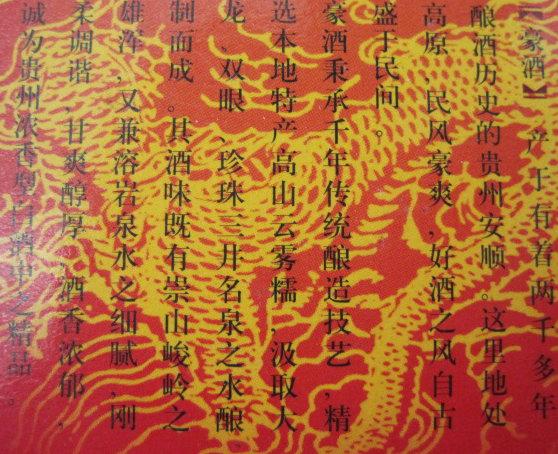 【豪酒】 产于有着两千多年
酿酒历史的贵州安顺。这里地处
高原,民风豪爽,好酒之风自古
盛于民间。
豪酒秉承千年传统酿造技艺,精
选本地特产高山云雾糯,汲取大
龙、双眼、珍珠三井名泉之水酿
制而成。其酒味既有崇山峻岭之
雄浑,又兼溶岩泉水之细腻,刚
柔调谐,甘爽醇厚,酒香浓郁,
诚为贵州浓香型白酒中之精品。